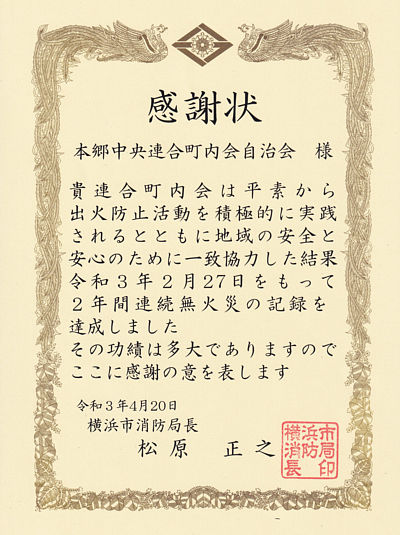 感謝状
本郷中央連合町内会自治会 様
貴連合町内会は平素から
出火防止活動を積極的に実践
されるとともに地域の安全と
安心のために一致協力した結果
令和3年2月27日をもって
2年間連続無火災の記録を
達成しました
その功績は多大でありますので
ここに感謝の意を表します
令和3年4月20日
横浜市消防局長
松原 正之
横浜市
消防局
長印